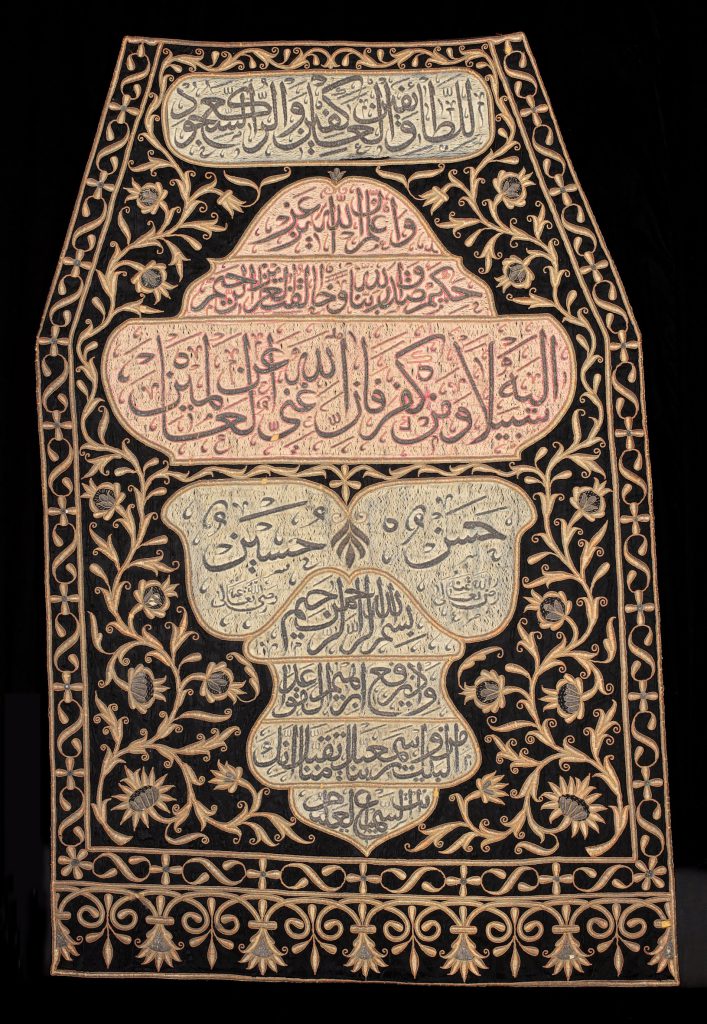 للطائفين والعكفين والركع السجود
واعلم ان الله عزيز
حكيم صدق الله ربنا وخالقنا العزيز الرحيم
اليه سبيلا ومن كفر فان الله غني عن العالمين
حسن حسين
رضي الله تعالى عنه رضي الله تعالى عنه
بسم الله الرحمن الرحيم
واذ يرفع ابرهيم القواعد
من البيت واسمعيل ربنا تقبل منا انك
انت السميع العليم